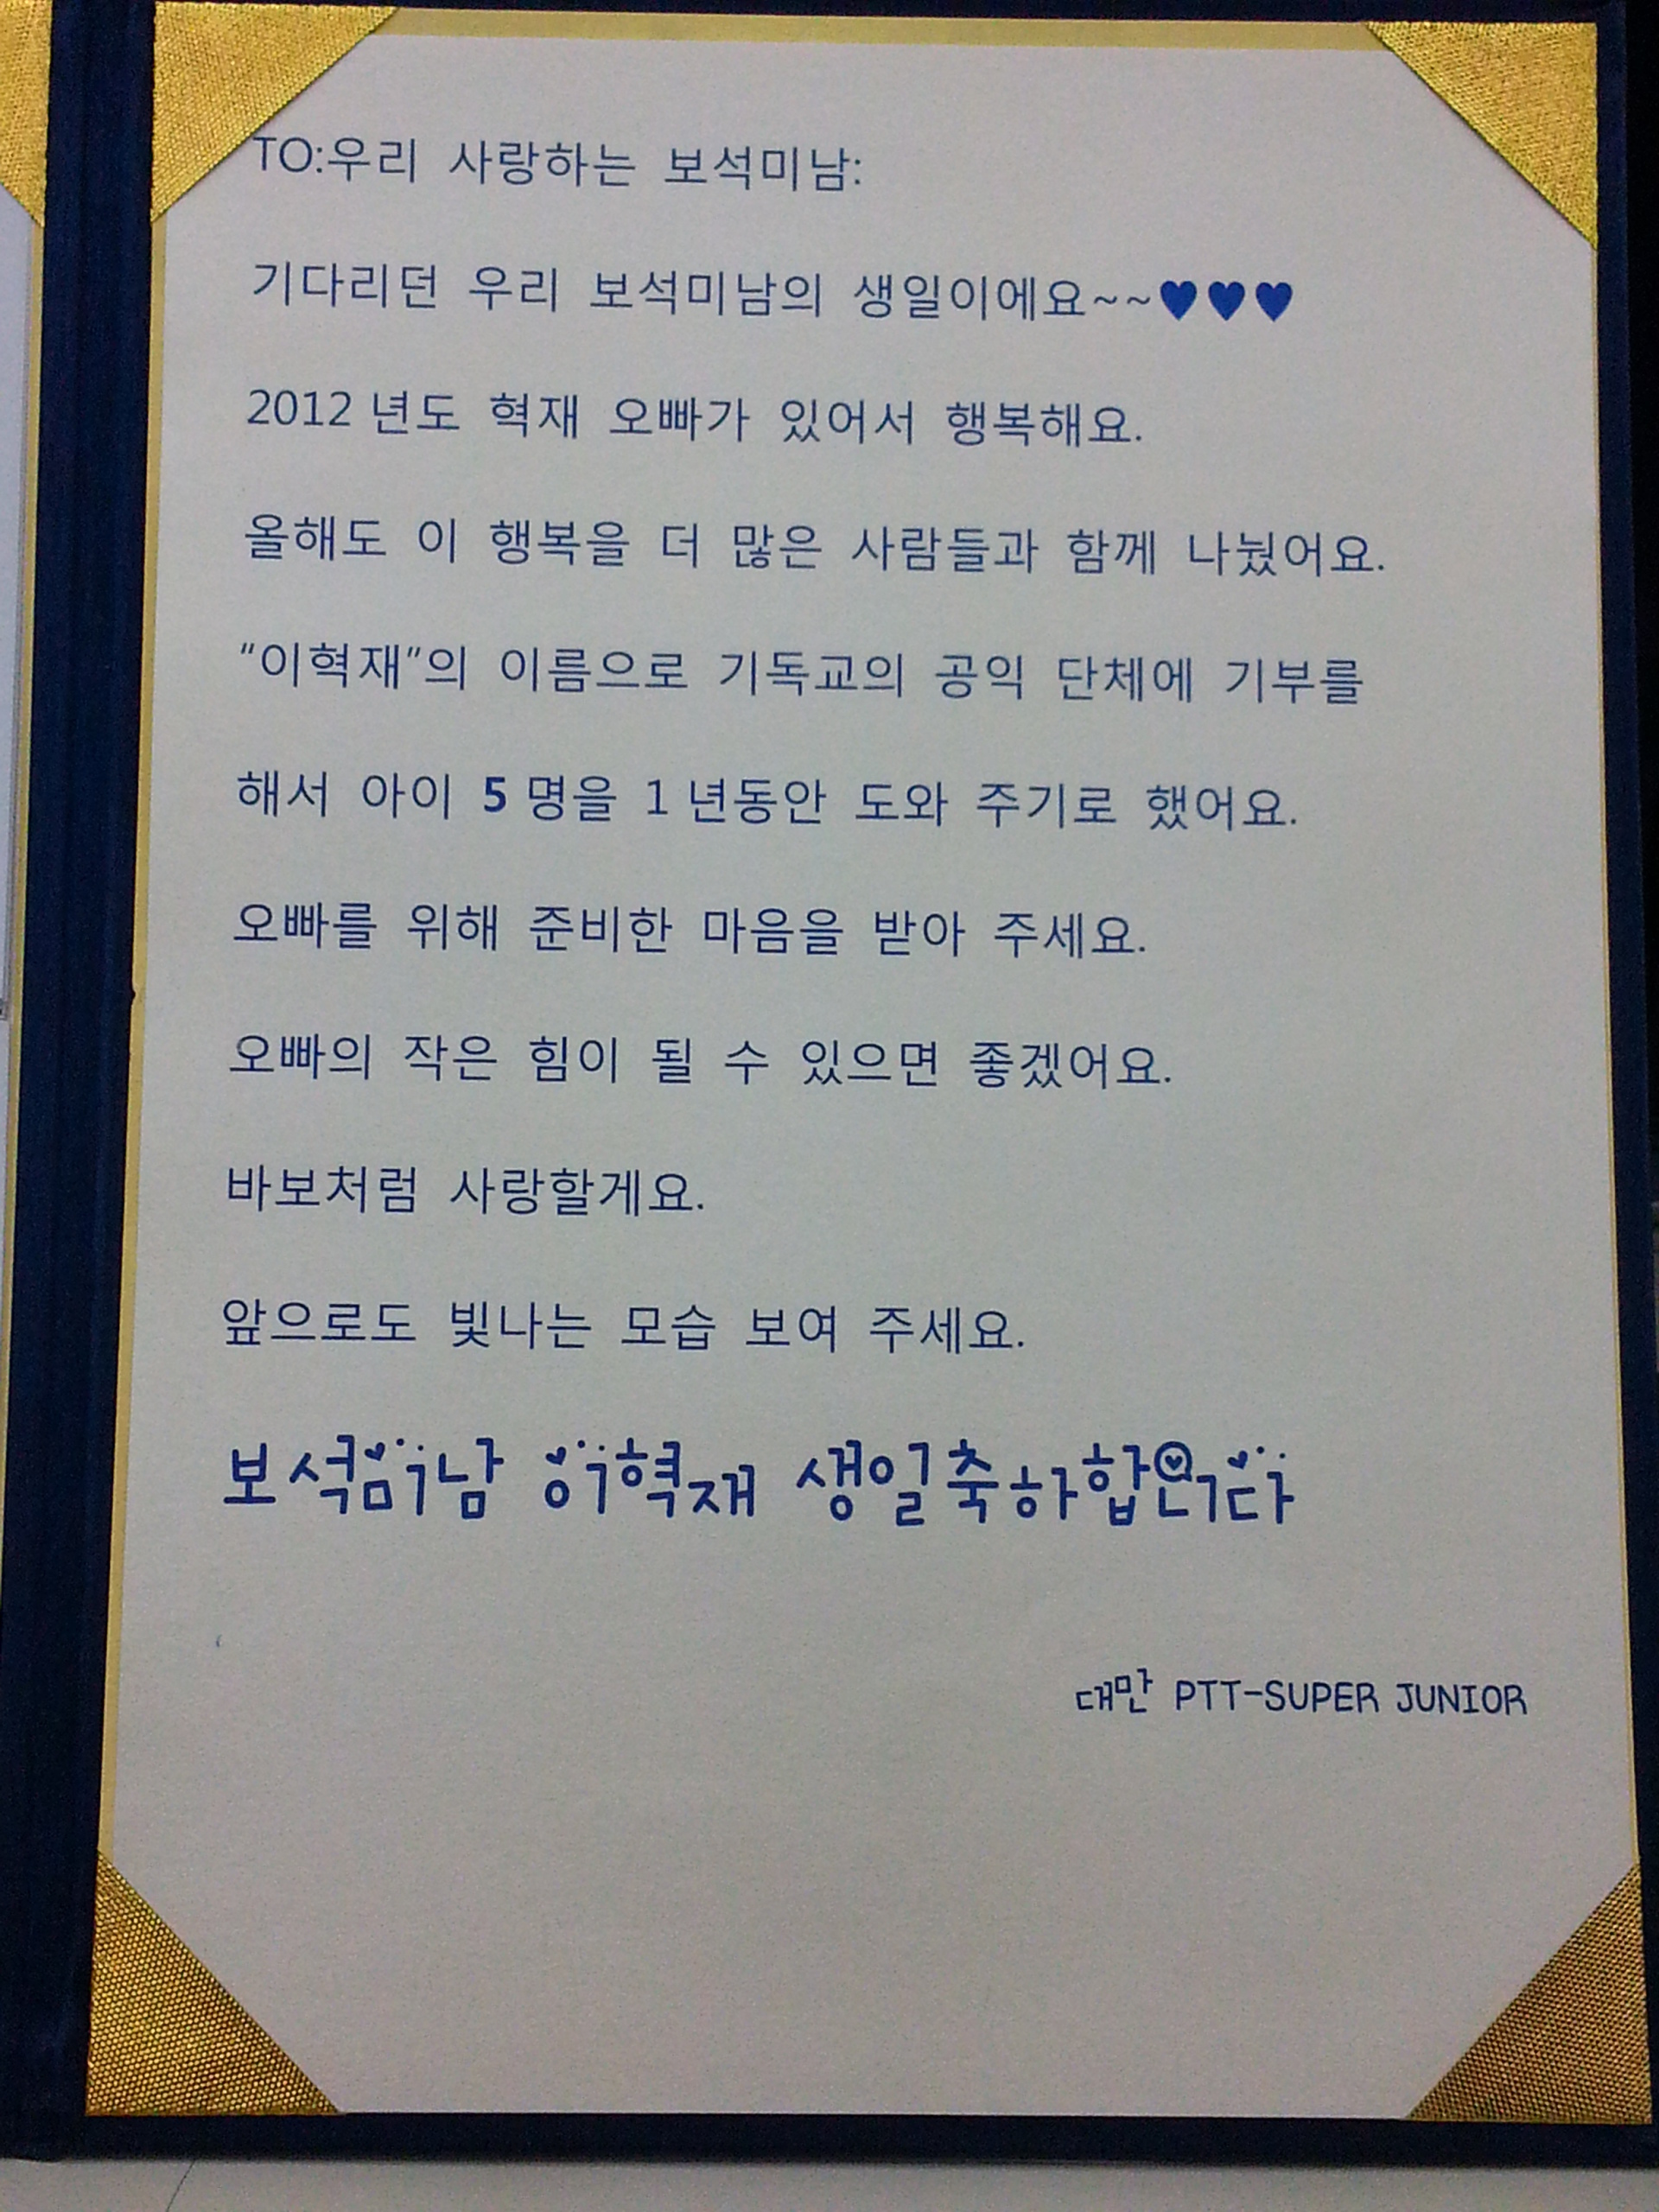 TO:우리 사랑하는 보석미남:
기다리던 우리 보석미남의 생일이에요~~♥♥♥
2012 년도 혁재 오빠가 있어서 행복해요.
올해도 이 행복을 더 많은 사람들과 함께 나눴어요.
“이혁재”의 이름으로 기독교의 공익 단체에 기부를
해서 아이 5 명을 1 년동안 도와 주기로 했어요.
오빠를 위해 준비한 마음을 받아 주세요.
오빠의 작은 힘이 될 수 있으면 좋겠어요.
바보처럼 사랑할게요.
앞으로도 빛나는 모습 보여 주세요.
보석미남 이혁재 생일축하합니다
대만 PTT-SUPER JUNIOR